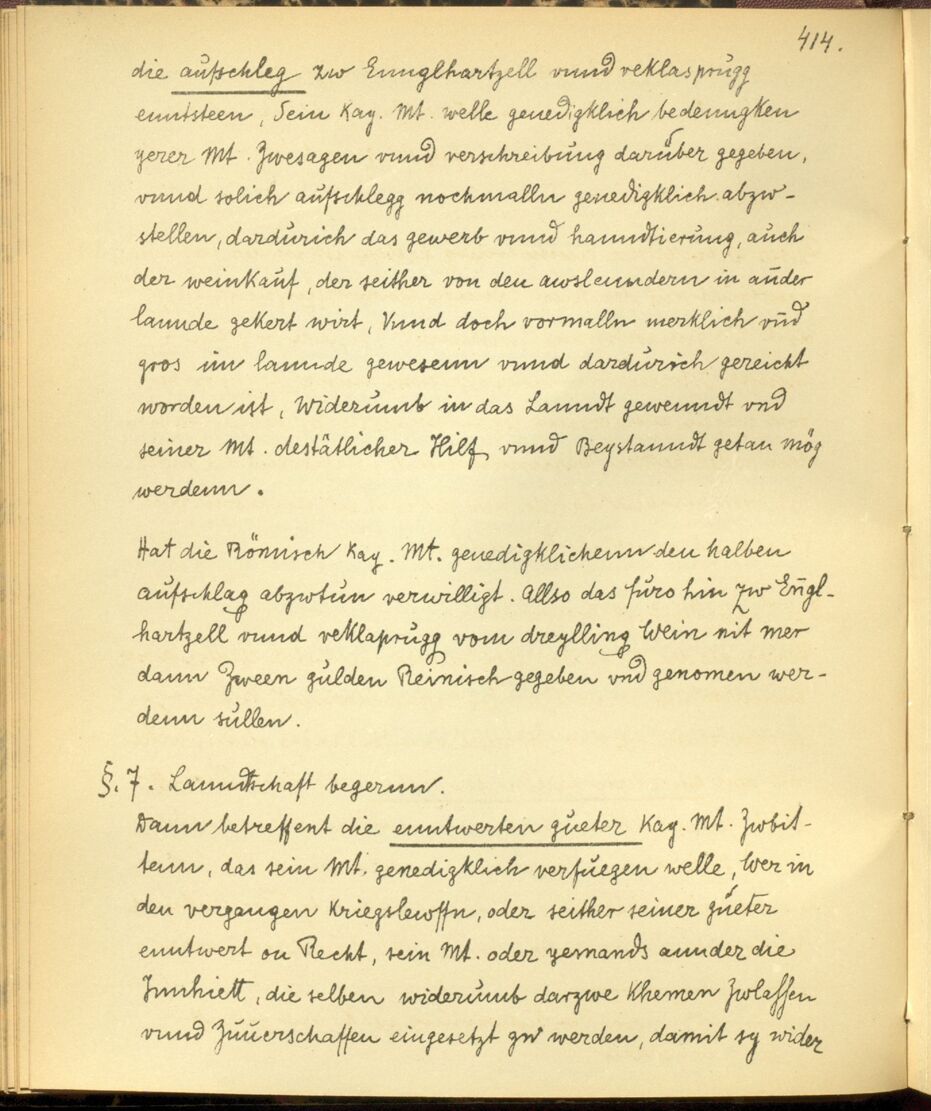 414.
die aufschleg zw Ennglhartzell vnnd veklasprugg
enntsteen, Sein Kay. Mt. welle genedigklich bedenngken
yerer Mt. Zwesagen vnnd verschreibung darüber gegeben,
vnnd solich aufschlegg nochmalln genedigklich abzw-
stellen, dardurich das gewerb vnnd hanndtierung, auch
der weinkauf, der seither von den awslenndern in ander
lannde gekert wirt, Vnnd doch vormalln merklich vnd
gros im lannde gewesenn vnnd dardurich gereicht
worden ist, Widerumb in das Lanndt gewenndt vnd
seiner Mt. destätlicher Hilf vnnd Beystanndt getan mög
werdenn.
Hat die Römisch Kay. Mt. genedigklichenn den halben
aufschlag abzwtun verwilligt. Allso das furo hin zw Engl-
hartzell vnnd veklaprugg vom dreylling Wein nit mer
dann Zween gulden Reinisch gegeben vnd genomen wer-
denn sullen.
§. 7. Lanndtschaft begernn.
Dann betreffent die enntwerten gueter Kay. Mt. Zwbit-
tenn, das sein Mt. genedigklich verfuegen welle, Wer in
den vergangen Kriegslewffn, oder seither seiner güeter
enntwert on Recht, sein Mt. oder yemands annder die
Innhiett, die selben widerumb darzwe Khemen Zwlassen
vnnd Zuuerschaffen eingesetzt zw werden, damit sy wider